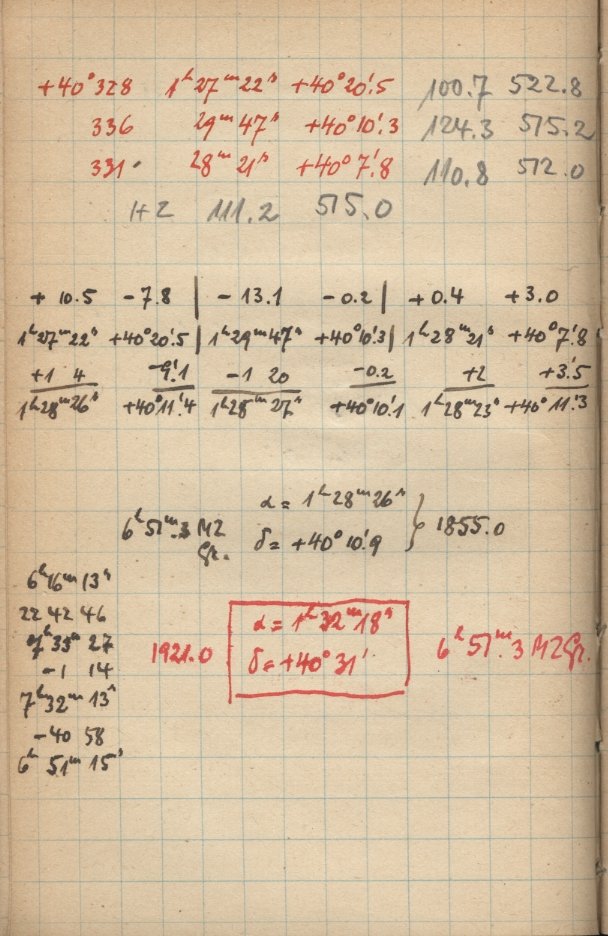 +40°328 1ʰ27ᵐ22ˢ +40°20'.5 100.7 522.8
336 29ᵐ47ˢ +40°10'.3 124.3 515.2
331 28ᵐ21ˢ +40°7'.8 110.8 512.0
1+2 111.2 515.0
+ 10.5 - 7.8 | - 13.1 - 0.2 | + 0.4 + 3.0
1ʰ27ᵐ22ˢ +40°20'.5 | 1ʰ29ᵐ47ˢ +40°10'.3 | 1ʰ28ᵐ21ˢ +40°7'.8
+1 4 -9'.1 -1 20 -0.2 +2 +3'.5
1ʰ28ᵐ26ˢ +40°11'.4 1ʰ28ᵐ27ˢ +40°10'.1 1ʰ28ᵐ23ˢ +40°11'.3
α = 1ʰ28ᵐ26ˢ
6ʰ51ᵐ.3 MZ Gr. } 1855.0
δ = +40°10'.9
6ʰ16ᵐ13ˢ
22 42 46
35ᵐ 27
-1 14
7ʰ32ᵐ13ˢ
-40 58
6ʰ 51ᵐ 15ˢ
α = 1ʰ32ᵐ18ˢ
1921.0 6ʰ51ᵐ.3 MZ Gr.
δ = +40°31'